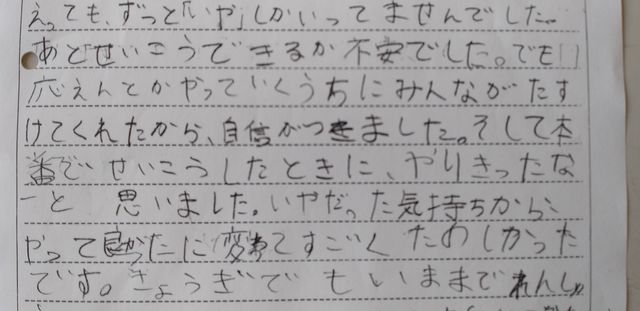 えっても、ずっと「いや」しかいってませんでした。
あとせいこうできるか不安でした。でも
応えんとかやっていくうちにみんながたす
けてくれたから、自信がつきました。そして本
番でせいこうしたときに、やりきったな
ーと思いました。いやだった気持ちから、
やって良かったに変わてすごくたのしかった
です。きょうぎでもいままでれんしゅ